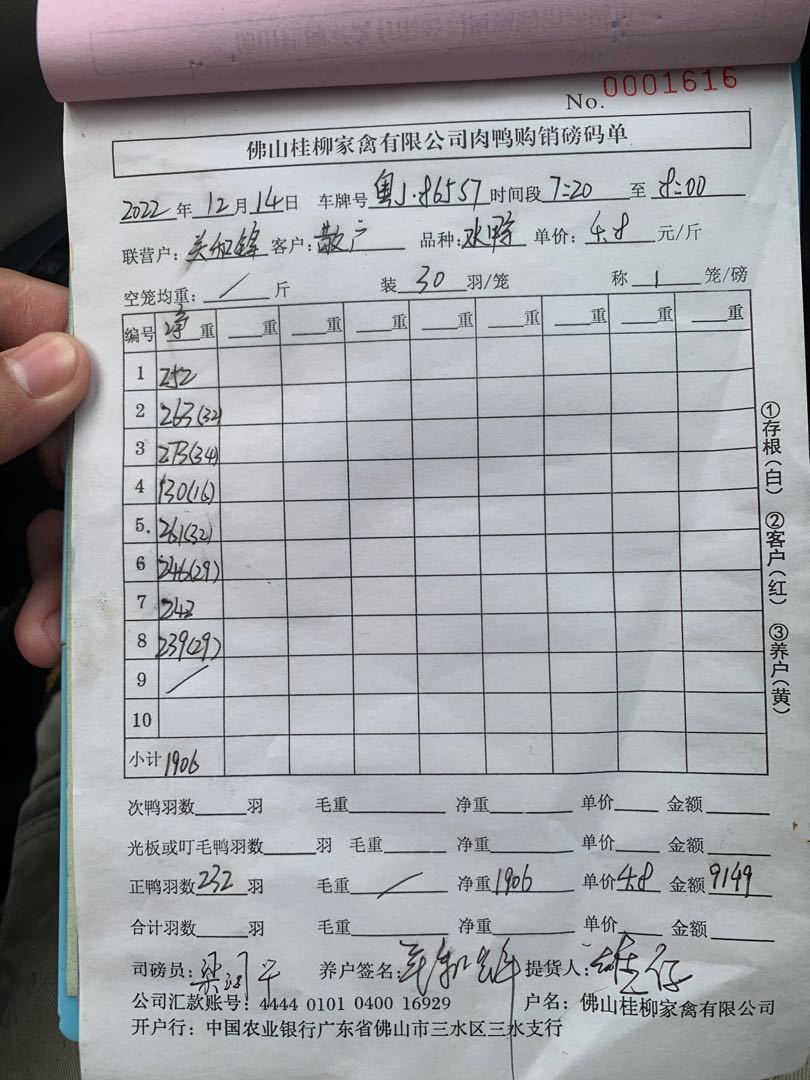 No. 0001616
佛山桂柳家禽有限公司肉鸭购销磅码单
2022 年 12 月 14 日 车牌号 粤J·86557 时间段 7:20 至 8:00
联营户: 客户: 散户 品种: 水鸭 单价: 4.8 元/斤
空笼均重: / 斤 装 30 羽/笼 称 1 笼/磅
编号 净重 重 重 重 重 重 重 重 重
1 252
2 263(32)
3 273(34)
4 130(16)
5. 261(32)
6 246(29)
7 242
8 239(29)
9 /
10
小计 1906
①存根(白) ②客户(红) ③养户(黄)
次鸭羽数 羽 毛重 净重 单价 金额
光板或叮毛鸭羽数 羽 毛重 净重 单价 金额
正鸭羽数 232 羽 毛重 / 净重 1906 单价 4.8 金额 9149
合计羽数 羽 毛重 净重 单价 金额
司磅员: 养户签名: 提货人:
公司汇款账号: 4444 0101 0400 16929 户名: 佛山桂柳家禽有限公司
开户行: 中国农业银行广东省佛山市三水区三水支行